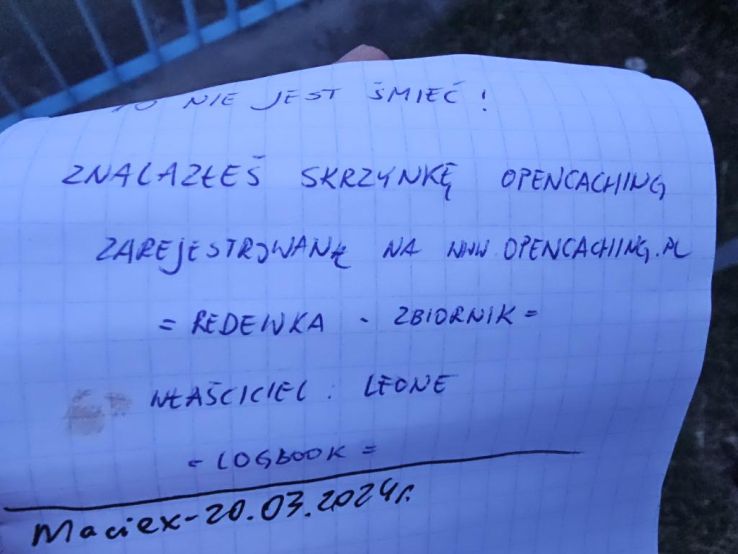 TO NIE JEST ŚMIEĆ!
ZNALAZŁEŚ SKRZYNKĘ OPENCACHING
ZAREJESTROWANĄ NA WWW.OPENCACHING.PL
= REDEWKA - ZBIORNIK =
WŁAŚCICIEL: LEONE
= LOGBOOK =
Maciex-20.03.2024r.